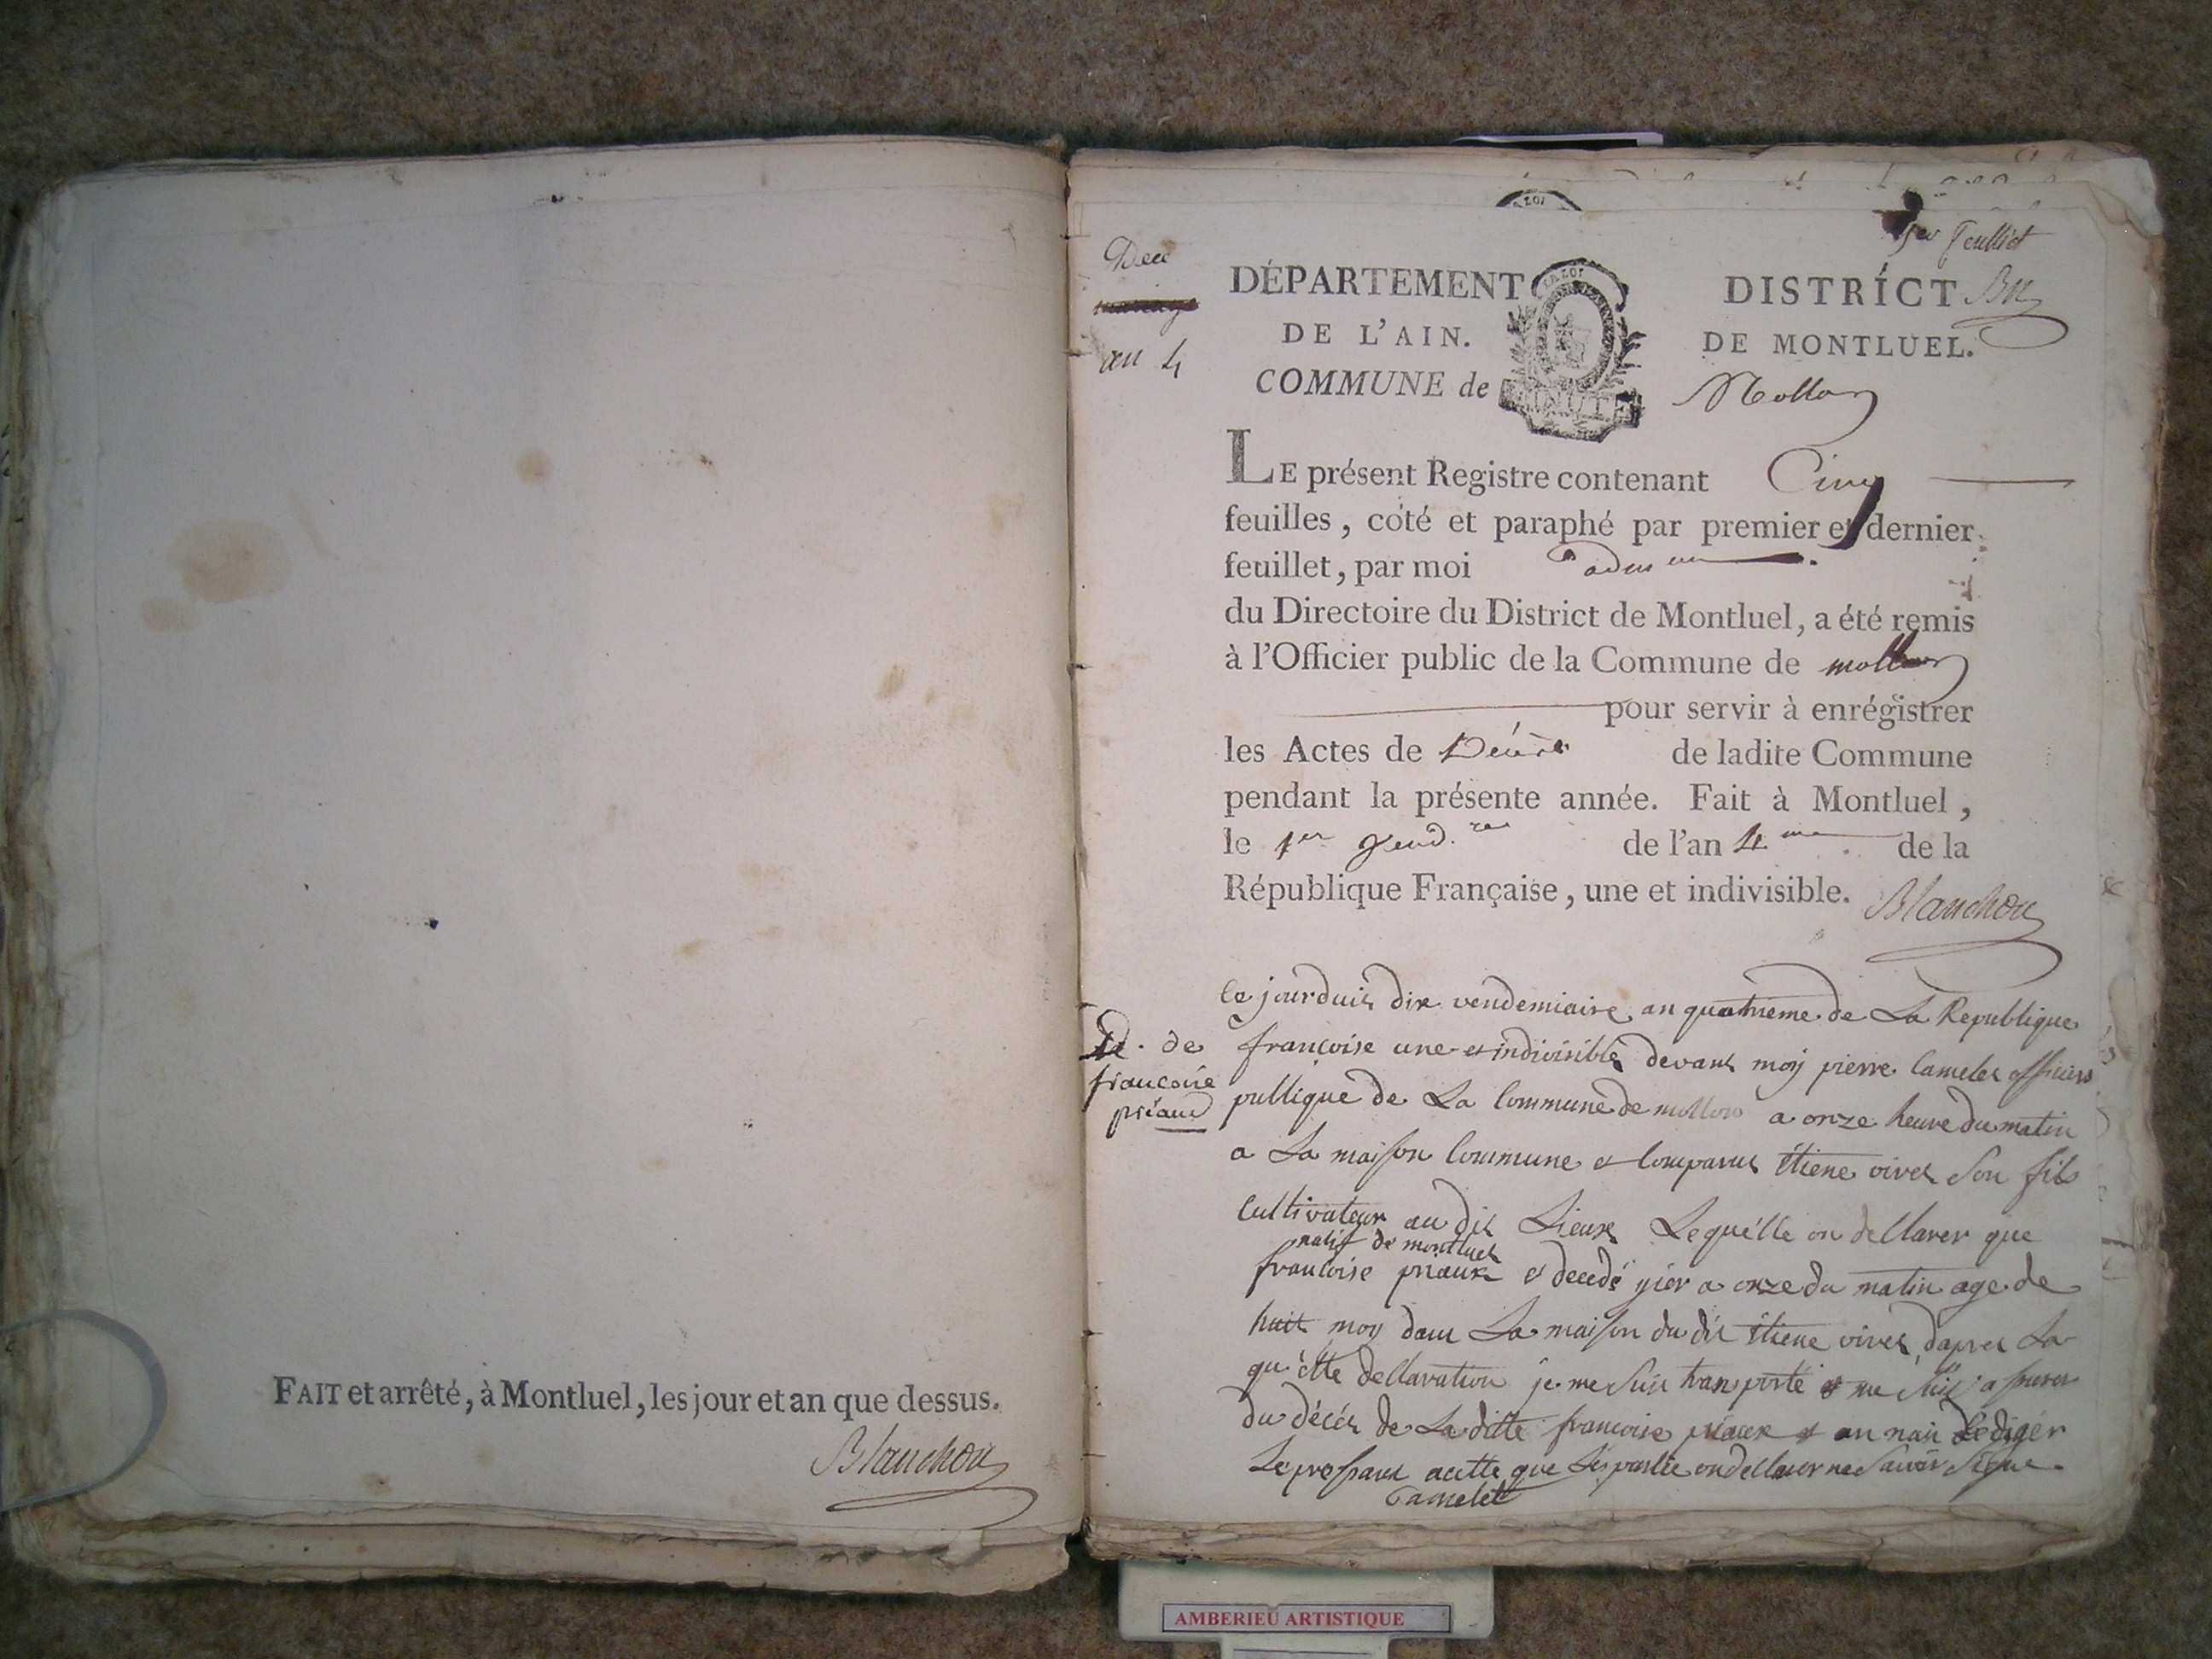 FAIT et arrêté, à Montluel, les jour et an que dessus.
Blanchon
1er feuillet
Bn
Decè
mariage
an 4
DÉPARTEMENT
DE L'AIN.
COMMUNE de
LA LOI
MINUTE
DISTRICT
DE MONTLUEL.
Mollon
LE présent Registre contenant Cinq
feuilles, coté et paraphé par premier et dernier
feuillet, par moi adm
du Directoire du District de Montluel, a été remis
à l'Officier public de la Commune de mollon
pour servir à enrégistrer
les Actes de Décès de ladite Commune
pendant la présente année. Fait à Montluel,
le 1er Vend.re de l'an 4me de la
République Française, une et indivisible.
Blanchon
D. de
francoise
priaud
ce jourduis dix vendemiaire an quatrieme de La Republique
francoise une et indivisible devant moy pierre Camelet officier
publique de La Commune de mollon a onze heure du matin
a La maison Commune et Comparut étiene vivet Son fils
Cultivateur au dit Lieux Lequélle on dellarer que
natif de montluel
francoise priaux et decedé yier a onze du matin age de
huit moy dans La maison du dit étiene vivet dapret La
qu'élle dellaration je me Suis transporté et me Suis assurer
du décés de La ditte francoise priaux et an nais Rediger
Le pressant acitte que Les partie on dellarer ne Savoir Signe.
Camelet
AMBERIEU ARTISTIQUE